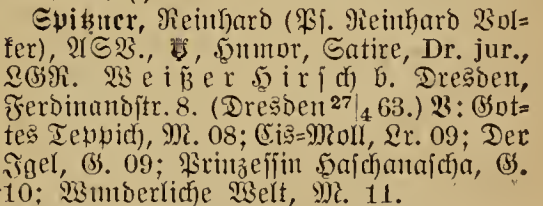 Spitzner, Reinhard (Ps. Reinhard Vol=
ker), ASV., Humor, Satire, Dr. jur.,
LGR. Weißer Hirsch b. Dresden,
Ferdinandstr. 8. (Dresden 27|4 63.) V: Got=
tes Teppich, M. 08; Cis=Moll, Lr. 09; Der
Igel, G. 09; Prinzessin Haschanascha, G.
10; Wunderliche Welt, M. 11.